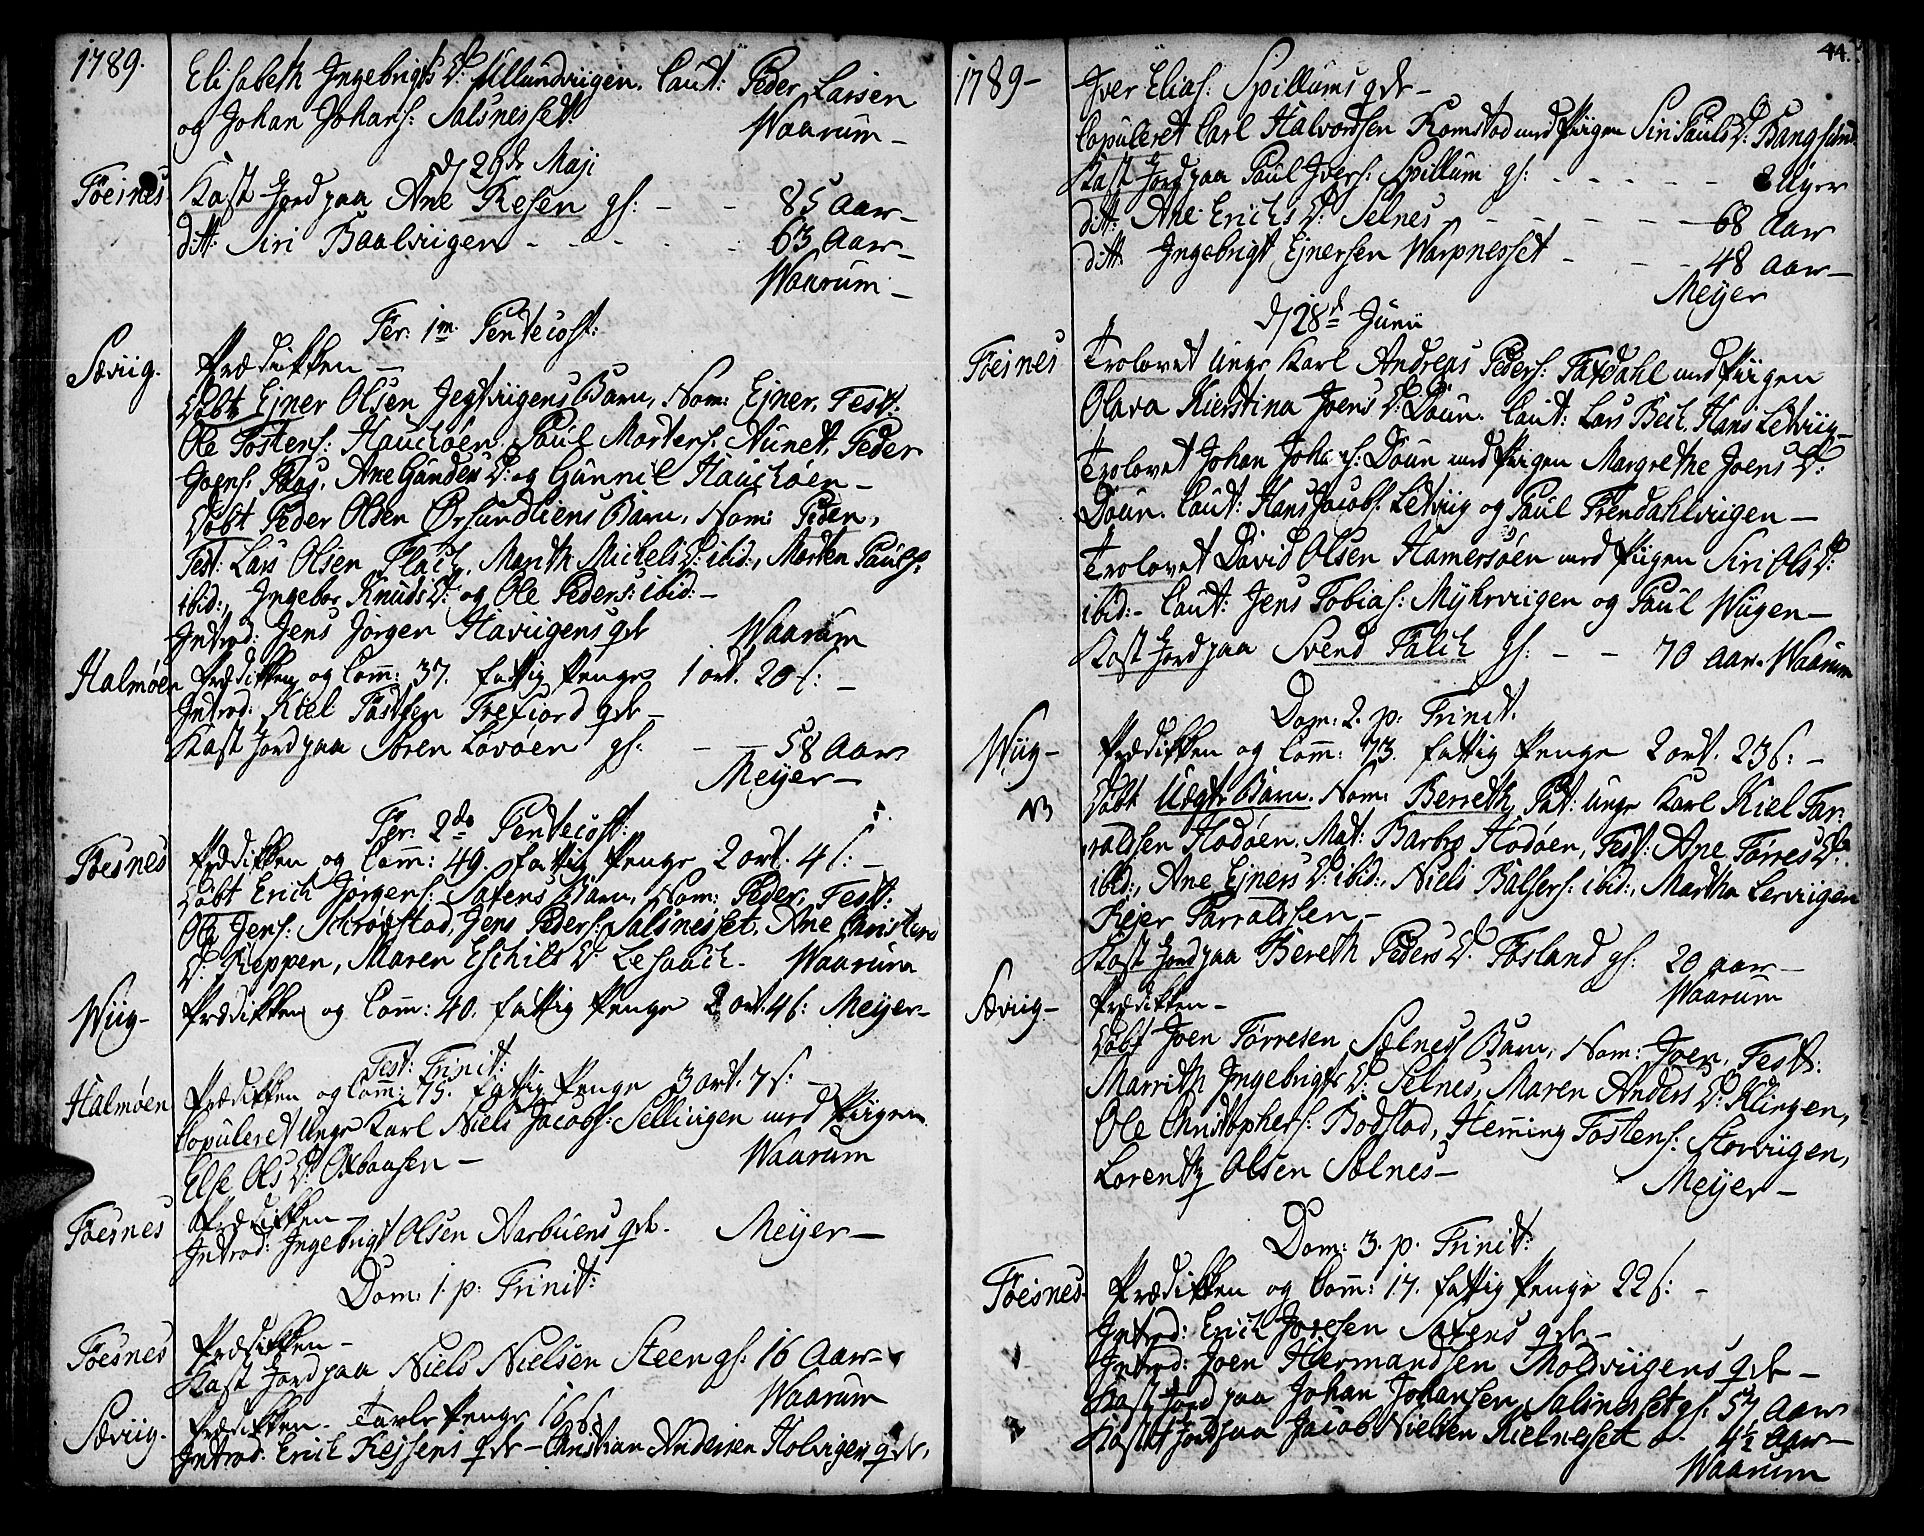 1789.
Elisabeth Ingebrigts D: Ullundviigen. Caut: Peder Larsen
og Johan Johans: Salsnesset
Waarum –
d 29de Maji
Föesnes
Kast Jord paa Ane Resen gl: – – 85 Aar –
ditt: Siri Baalviigen – – – – 63 Aar –
Waarum –
Fer: 1m. Pentecost:
Sæviig.
Prædikken –
Döbt Ejner Olsen Jegtviigens Barn, Nom: Ejner, Test:
Ole Tostens: Hauchöen, Paul Mortens: Aunet, Peder
Joens: Faas, Ane Gunders D: og Gunnil Hauchöen –
Döbt Peder Olsen Örsundliens Barn, Nom: Peder,
Test: Lars Olsen Flach, Marith Michels D: ibid:, Morten Pauls:
ibid:, Ingebor Knuds D: og Ole Peders: ibid: –
Introd: Jens Jörgen Haviigens qde
Waarum
Halmöen
Prædikken og Com: 37. fattig Penge 1 ort. 20 s: –
Introd: Kiel Tostsen Trefiord qde –
Kast Jord paa Sören Lövöen gl: – – 58 Aar
Meyer –
Fer: 2de Pentecost:
Föesnes
Prædikken og Com: 49. fattig Penge 2 ort. 4 s: –
Döbt Erich Jörgens: Saxens Barn, Nom: Peder, Test:
Ole Jens: Schrödstad, Jens Peders: Salsnesset, Ane Christina
D: Keppen, Maren Eschils D: Lesaach. Waarum
Wiig –
Prædikken og Com: 40. fattig Penge 2 ort. 4 s: Meyer –
Fest: Trinit:
Halmöen
Prædikken og Com: 75. fattig Penge 3 ort. 7 s: –
Copuleret Unge Karl Niels Jacobs: Selliigen med Piigen
Else Ols D: Oxbaasen –
Waarum
Föesnes
Prædikken –
Introd: Ingebrigt Olsen Aarbuens qde. Meyer –
Dom: 1. p: Trinit:
Föesnes
Prædikken –
Kast Jord paa Niels Nielsen Steen gl: 16 Aar –
Waarum
Sæviig.
Prædikken – Tavle Penge 16 s:
Introd: Erich Kejsens qde – Christian Andersen Holviigen qde,
44.
1789 –
Iver Elias: Spillums qde –
Copuleret Carl Halvorsen Romstad med Piigen Siri Pauls D: Bangsund
Kast Jord paa Paul Ivers: Spillum gl: – – – – – Uger
ditt: Ane Erichs D: Selnes – – – – – – 68 Aar
ditt: Ingebrigt Ejnersen Warpnesset – – – 48 Aar –
Meyer
d 28d Junii
Föesnes
Trolovet Unge Karl Andreas Peders: Faxdahl med Piigen
Olava Kierstina Joens D: Duun. Caut: Lars Bech, Hans Letviig –
Trolovet Johan Johans: Duun med Piigen Margrethe Joens D:
Duun. Caut: Hans Jacobs: Letviig og Paul Frendahlviigen –
Trolovet David Olsen Hamersöen med Piigen Siri Ols D:
ibid: – Caut: Jens Tobias: Myhrviigen og Paul Wiigen –
Kast Jord paa Svend Falch gl: – – 70 Aar. Waarum
Dom: 2. p: Trinit.
Wiig –
Prædikken og Com: 73. fattig Penge 2 ort. 23 s: –
NB
Döbt Uægte Barn. Nom: Berreth, Pat: Unge Karl Kiel Tar:
raldsen Hodöen. Mat: Barbro Hodöen, Test: Ane Törres D:
ibid:, Ane Ejners D: ibid:, Niels Balsers: ibid:, Martha Lerviigen
Rejer Tarraldsen –
Kast Jord paa Bereth Peders D: Fosland gl: 20 aar –
Waarum
Sæviig –
Prædikken –
Döbt Joen Törresen Sælnes Barn, Nom: Joen, Test:
Marrith Ingebrigts D: Selnes, Maren Anders D: Klingen,
Ole Christophers: Bodstad, Hemming Tostens: Storviigen,
Lorentz Olsen Sælnes –
Meyer –
Dom: 3. p. Trinit:
Föesnes.
Prædikken og Com: 17. fattig Penge 22 s: –
Introd: Erich Joresen Saxens qde –
Introd: Joen Hermandsen Moldviigens qde –
Kast Jord paa Johan Johansen Salsnesset gl: 57 Aar
Kastet Jord paa Jacob Nielsen Kielnesset – 4½ Aar –
Waarum